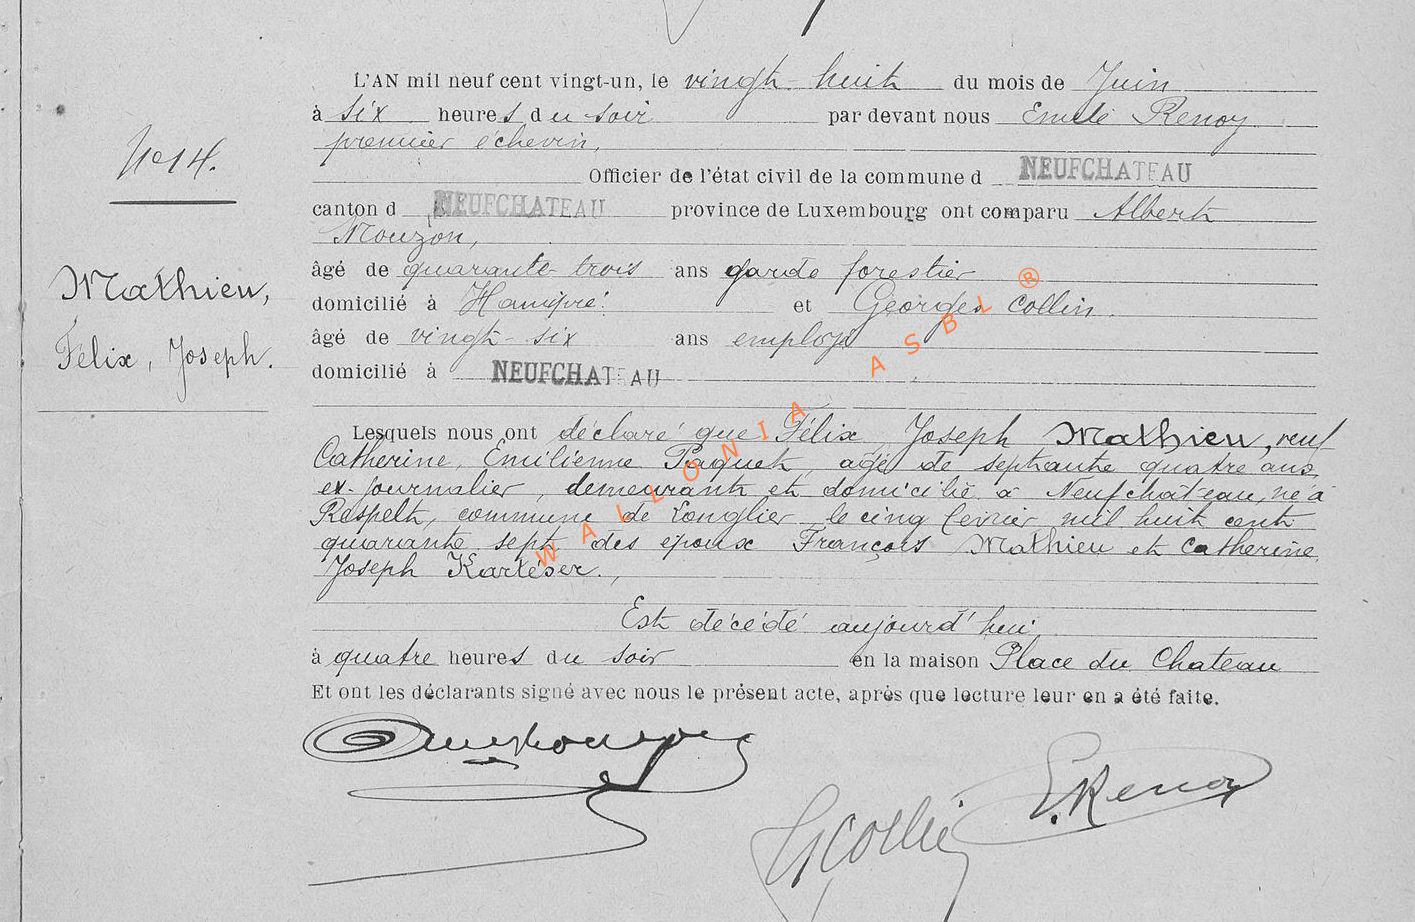 L'AN mil neuf cent vingt-un, le vingt-huit du mois de Juin
à six heures du soir par devant nous Emile Renoy
premier échevin,
N° 14.
Officier de l'état civil de la commune d NEUFCHATEAU
canton d NEUFCHATEAU province de Luxembourg ont comparu Albert
Mouzon,
âgé de quarante-trois ans garde forestier
Mathieu,
domicilié à Hamipré et Georges Collin.
âgé de vingt-six ans employé
Félix, Joseph.
domicilié à NEUFCHATEAU
Lesquels nous ont déclaré que Félix Joseph Mathieu, veuf
Catherine, Emilienne Paquet, agé de septante quatre ans,
ex-journalier, demeurant et domicilié à Neufchâteau, né à
Respelt, commune de Longlier le cinq février mil huit cent
quarante sept des époux François Mathieu et Catherine
Joseph
Est décédé aujourd'hui
à quatre heures du soir en la maison Place du Chateau
Et ont les déclarants signé avec nous le présent acte, après que lecture leur en a été faite.
E. Renoy
G Collin
WALLONIA ASBL ®